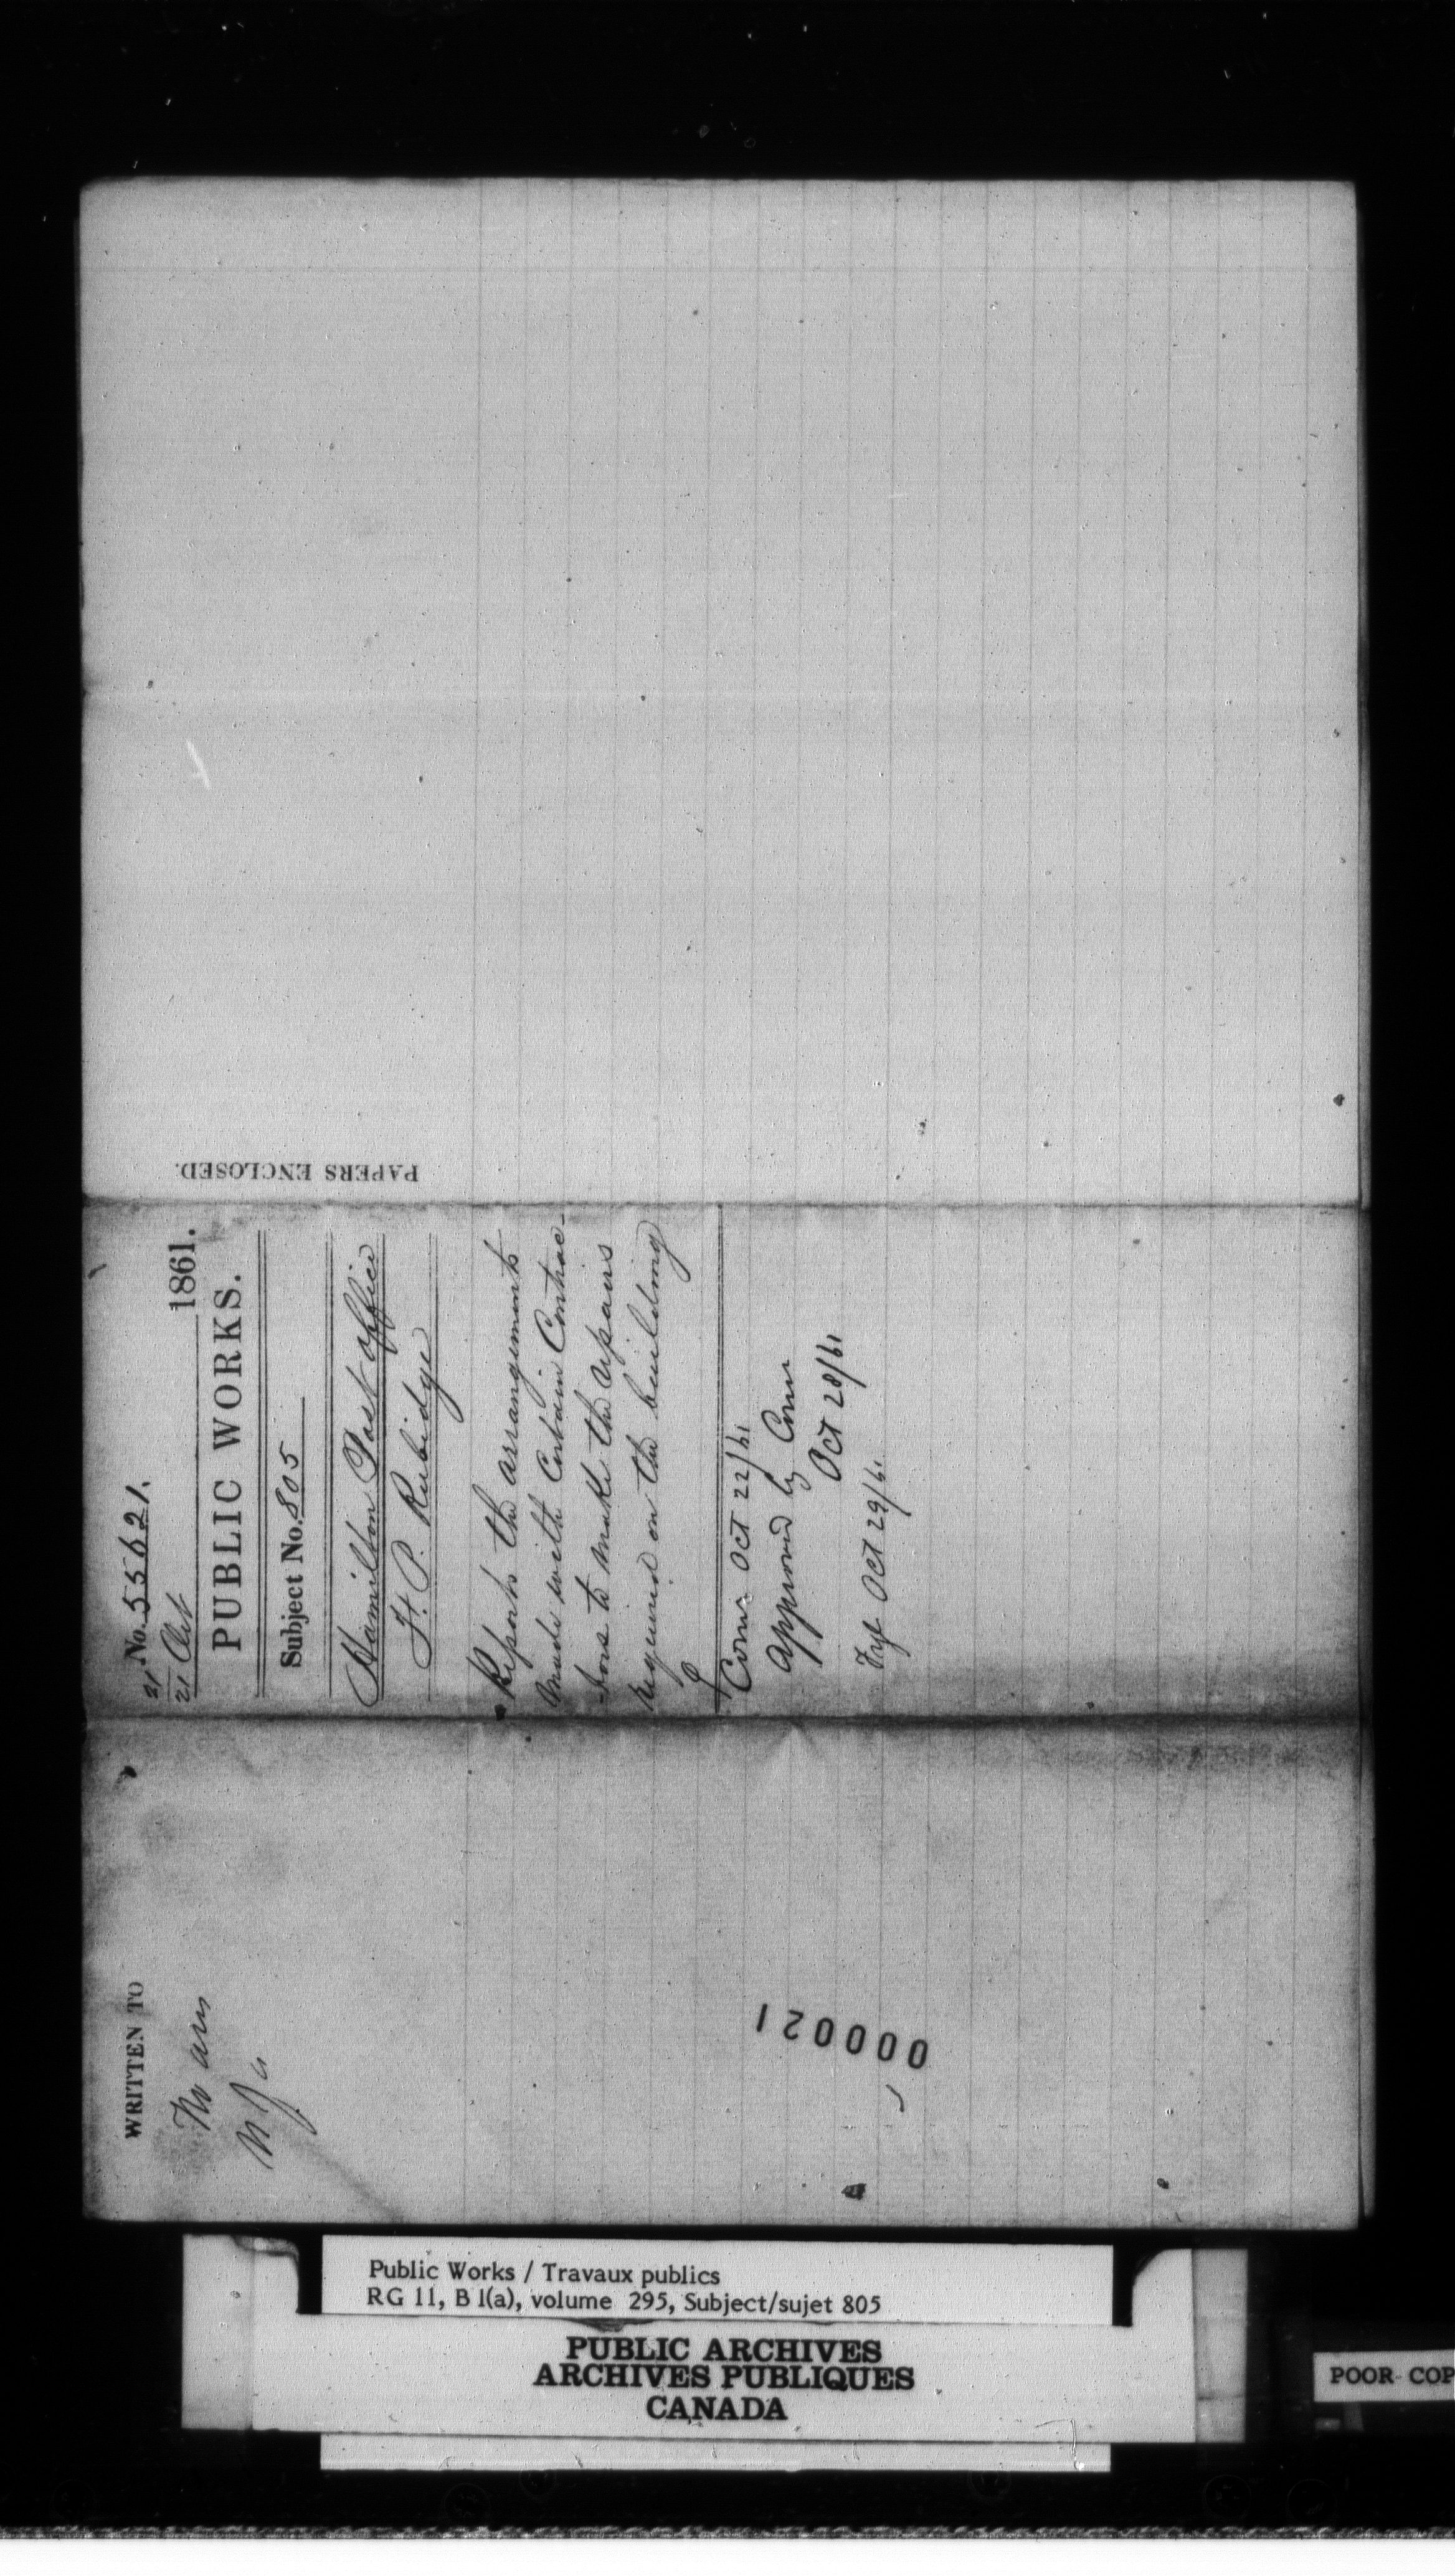 PAPERS ENCLOSED.
No. 55621.
21
21 Oct 1861.
PUBLIC WORKS.
Subject No. 805
Hamilton Post office
F. P. Rubidge
Reports the arrangements
made with Certain Contrac-
-tors to make the repairs
required on the building
Comr Oct 22/61
Approved by Comr
Oct 28/61
Oct 29/61
WRITTEN TO
No ans
000021
Public Works / Travaux publics
RG 11, B 1(a), volume 295, Subject/sujet 805
PUBLIC ARCHIVES
ARCHIVES PUBLIQUES
CANADA
POOR COP